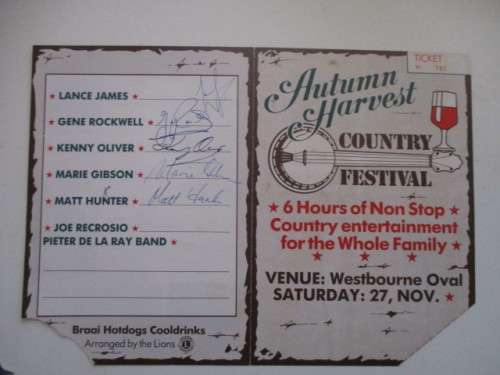 ★ LANCE JAMES
★ GENE ROCKWELL
★ KENNY OLIVER
★ MARIE GIBSON
★ MATT HUNTER Matt Hunter
★ JOE RECROSIO
PIETER DE LA RAY BAND ★
Braai Hotdogs Cooldrinks
Arranged by the Lions
TICKET
Autumn
Harvest
COUNTRY
FESTIVAL
★ 6 Hours of Non Stop ★
Country entertainment
for the Whole Family ★
VENUE: Westbourne Oval
SATURDAY: 27, NOV. ★